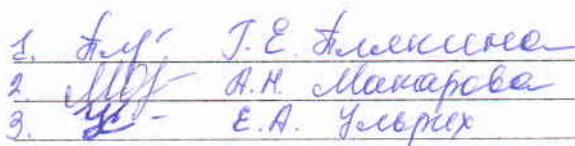 1. Г.Е. Плякина
2. А.Н. Макарова
3. Е.А. Ульрих